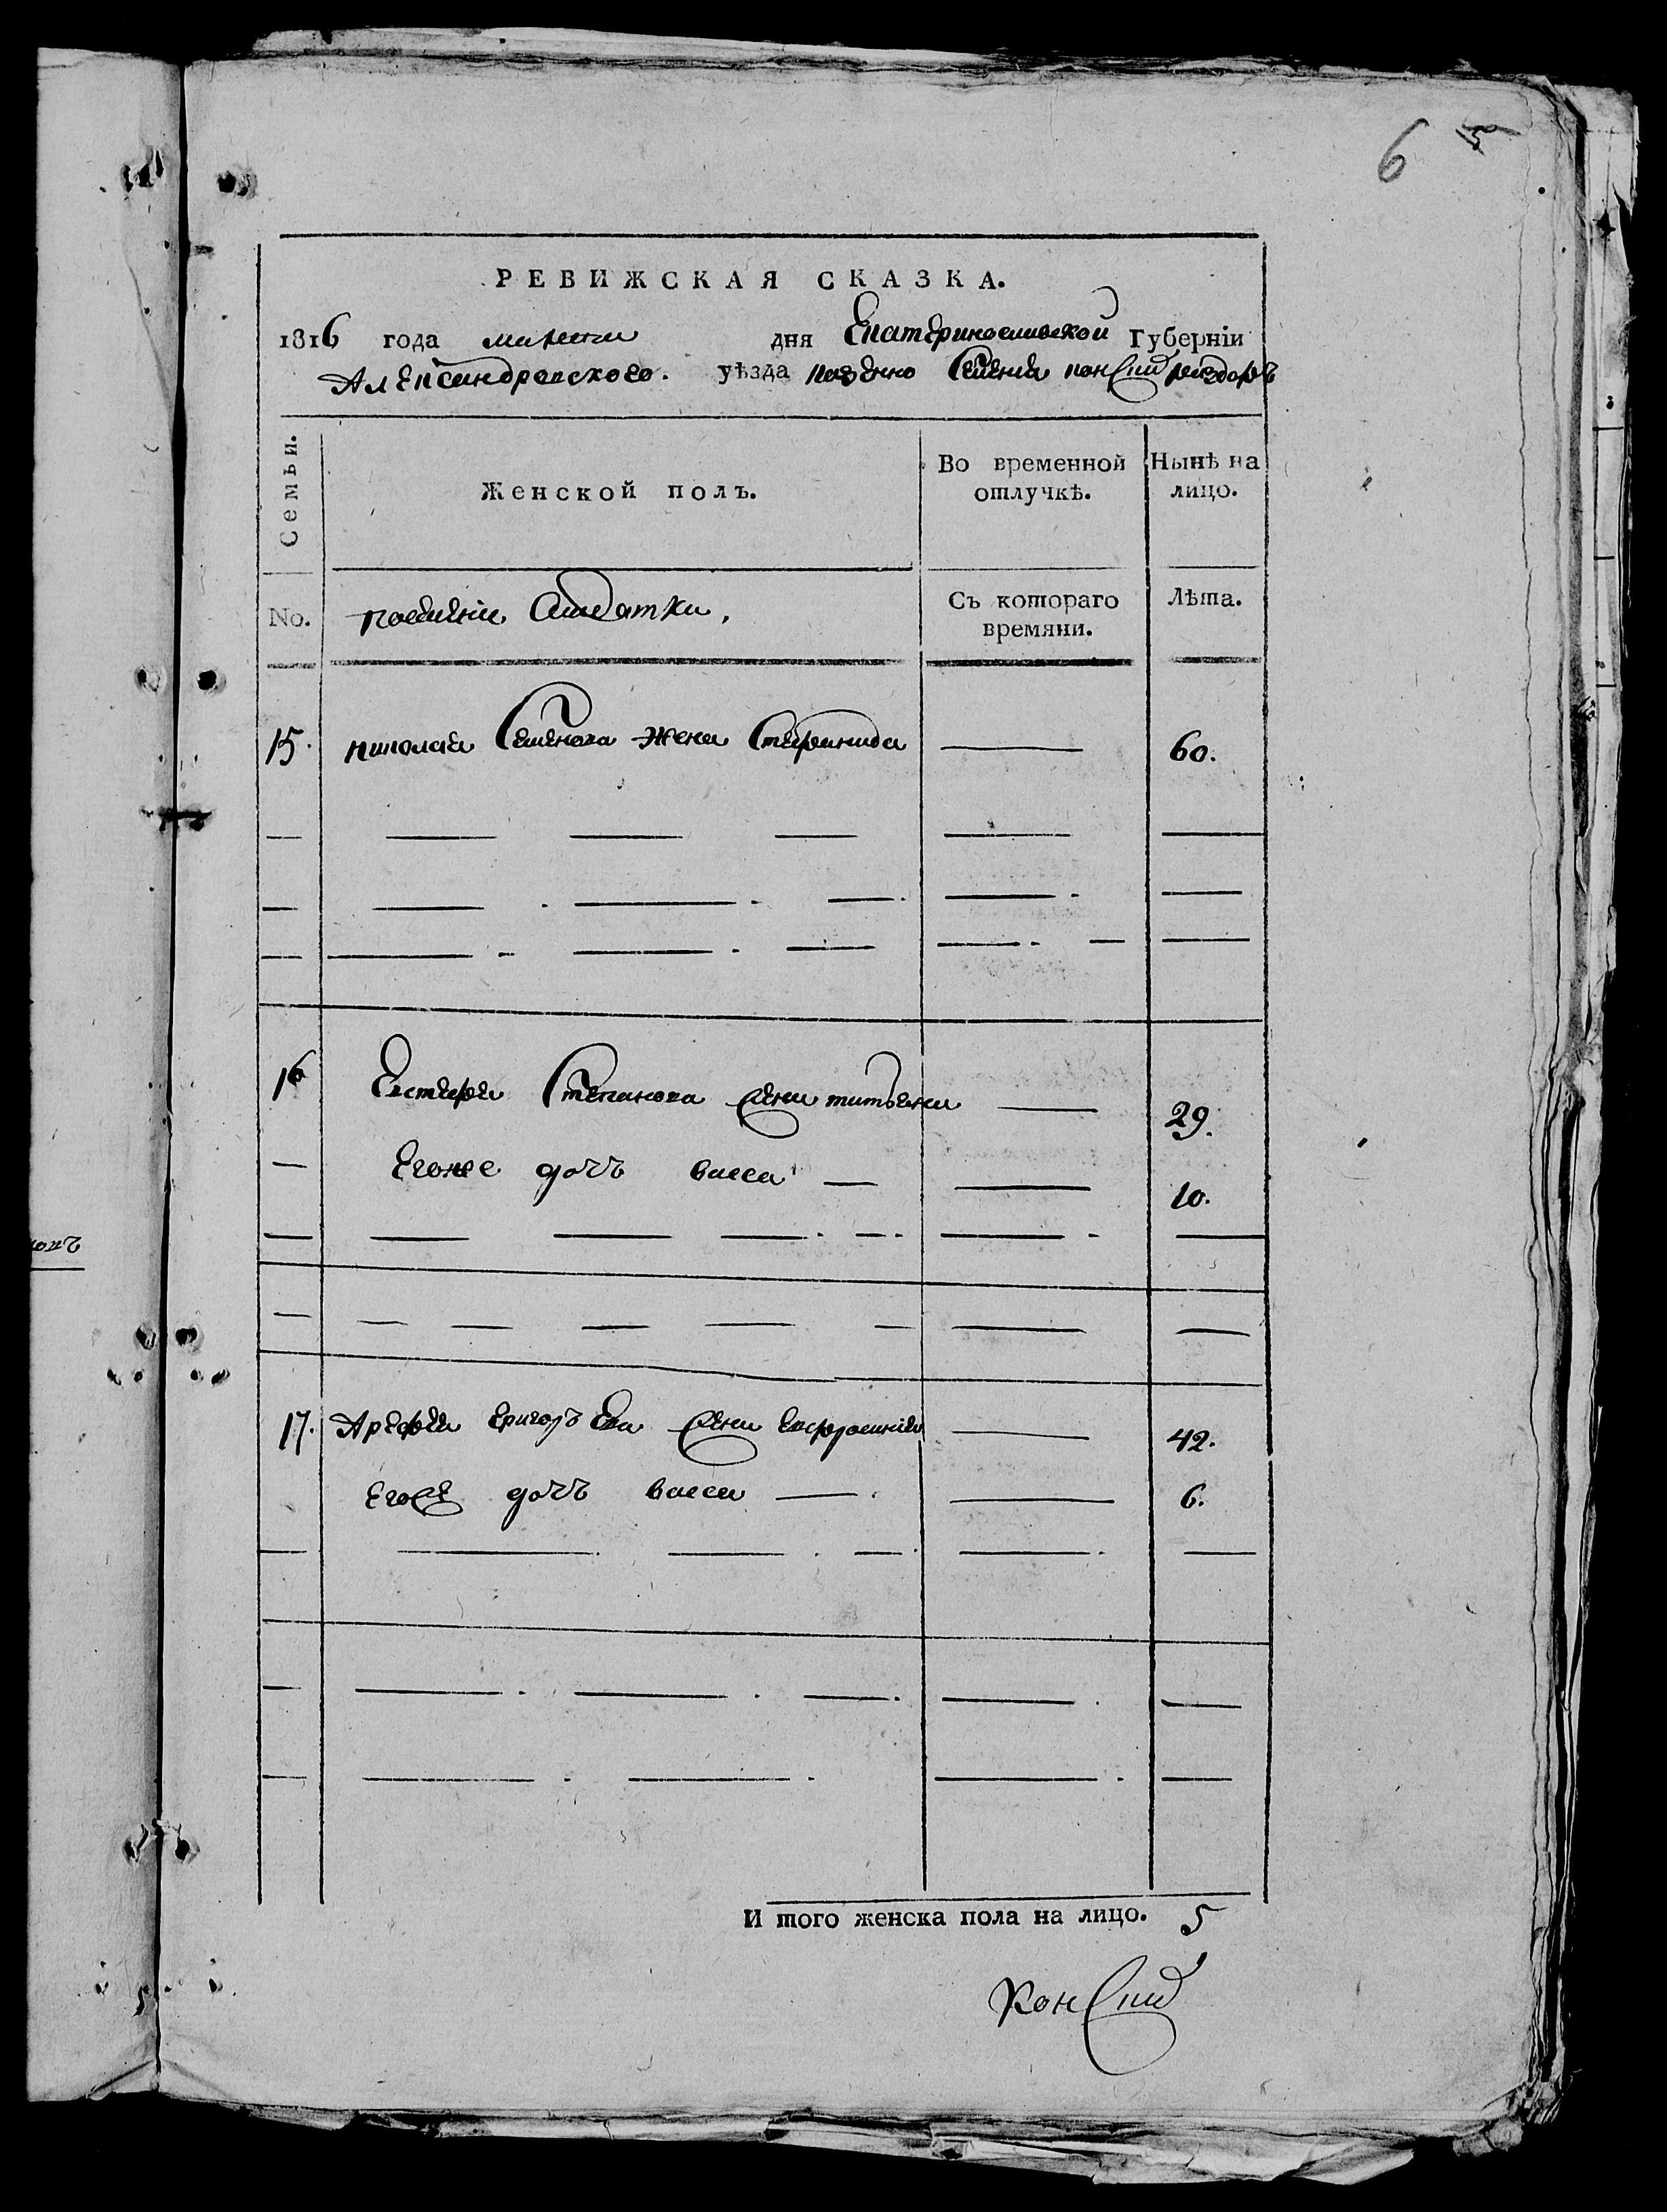 6 5
РЕВИЖСКАЯ СКАЗКА.
1816 года дня Екатеринославской Губерніи
Александровского. уѣзда казенно Селения
Семьи. Женской полъ. Во временной отлучкѣ. Нынѣ на лицо.
No. Съ котораго времяни. Лѣта.
15. николая Семенова жена 60.
16 Евстафя Степанова жена татьяна 29.
Егоже дочъ васса 10.
17. Арефея григорьева жена евфросиния 42.
Егоже дочъ васса 6.
И того женска пола на лицо. 5